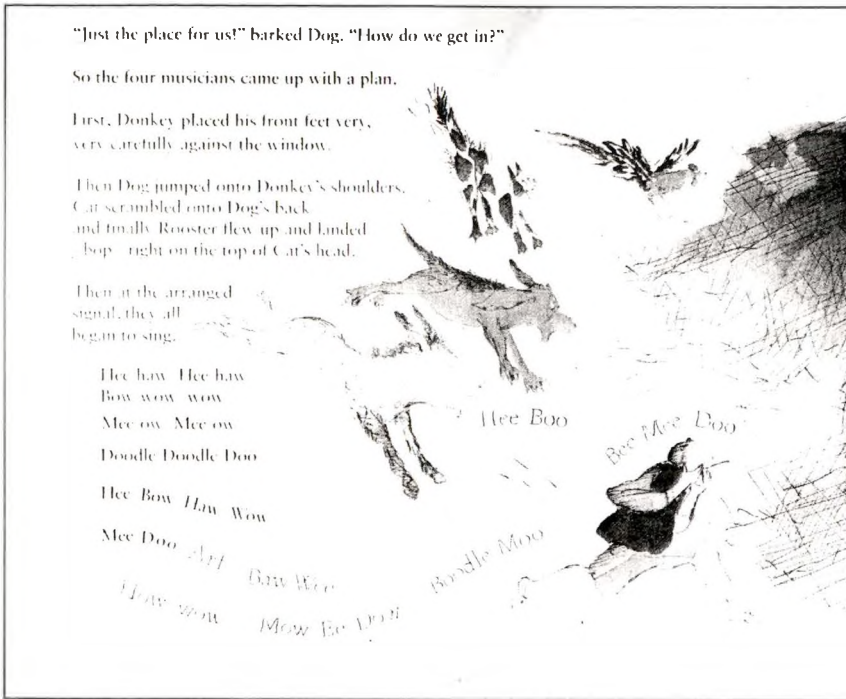 "Just the place for us!" barked Dog. "How do we get in?"
So the four musicians came up with a plan.
First, Donkey placed his front feet very,
very carefully against the window.
Then Dog jumped onto Donkey's shoulders,
Cat scrambled onto Dog's back
and finally Rooster flew up and landed
bop right on the top of Cat's head.
Then at the arranged
signal, they all
began to sing.
Hee haw Hee haw
Bow wow wow
Mee ow Mee ow
Doodle Doodle Doo
Hee Bow Haw Wow
Mee Doo Arf Baw Wee
How wow Mow Ee Dow
Boodle Moo
Hee Boo
Bee Mee Doo